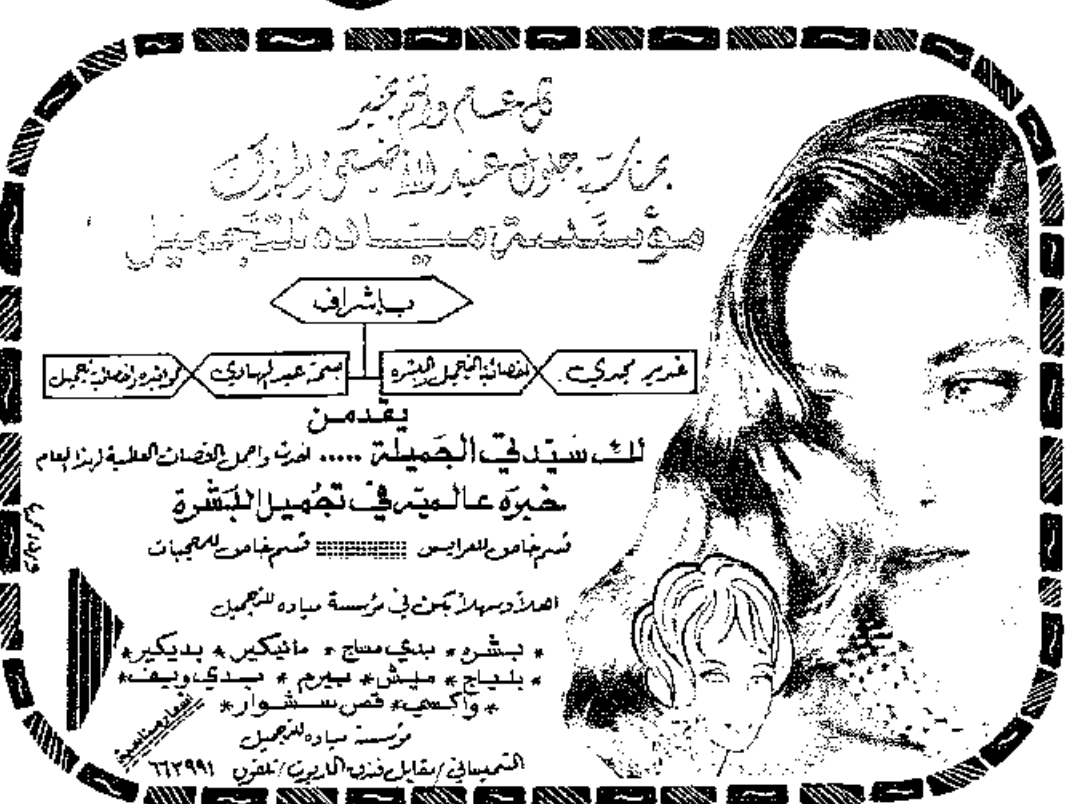 كل عام وانتم بخير
بمناسبة حلول عيد الأضحى المبارك
مؤسسة مياده للتجميل
باشراف
غدير مجدي
اخصائية التجميل والبشره
بسمة عبد الهادي
كوافيره واخصائية تجميل
يقدمن
لك سيدتي الجميلة ..... احدث واجمل القصات العالمية لهذا العام
خبرة عالمية في تجميل البشرة
قسم خاص للعرايس قسم خاص للمحجبات
اهلاً وسهلاً بكن في مؤسسة مياده للتجميل
* بشره * بدي مساج * مانيكير * بديكير *
* بلياج * ميش * بيرم * بدي ويف *
* واكسي * قص سشوار *
اسعار مناسبة
مؤسسة مياده للتجميل
الشميساني / مقابل فندق الماريوت / تلفون ٦٦٢٩٩١